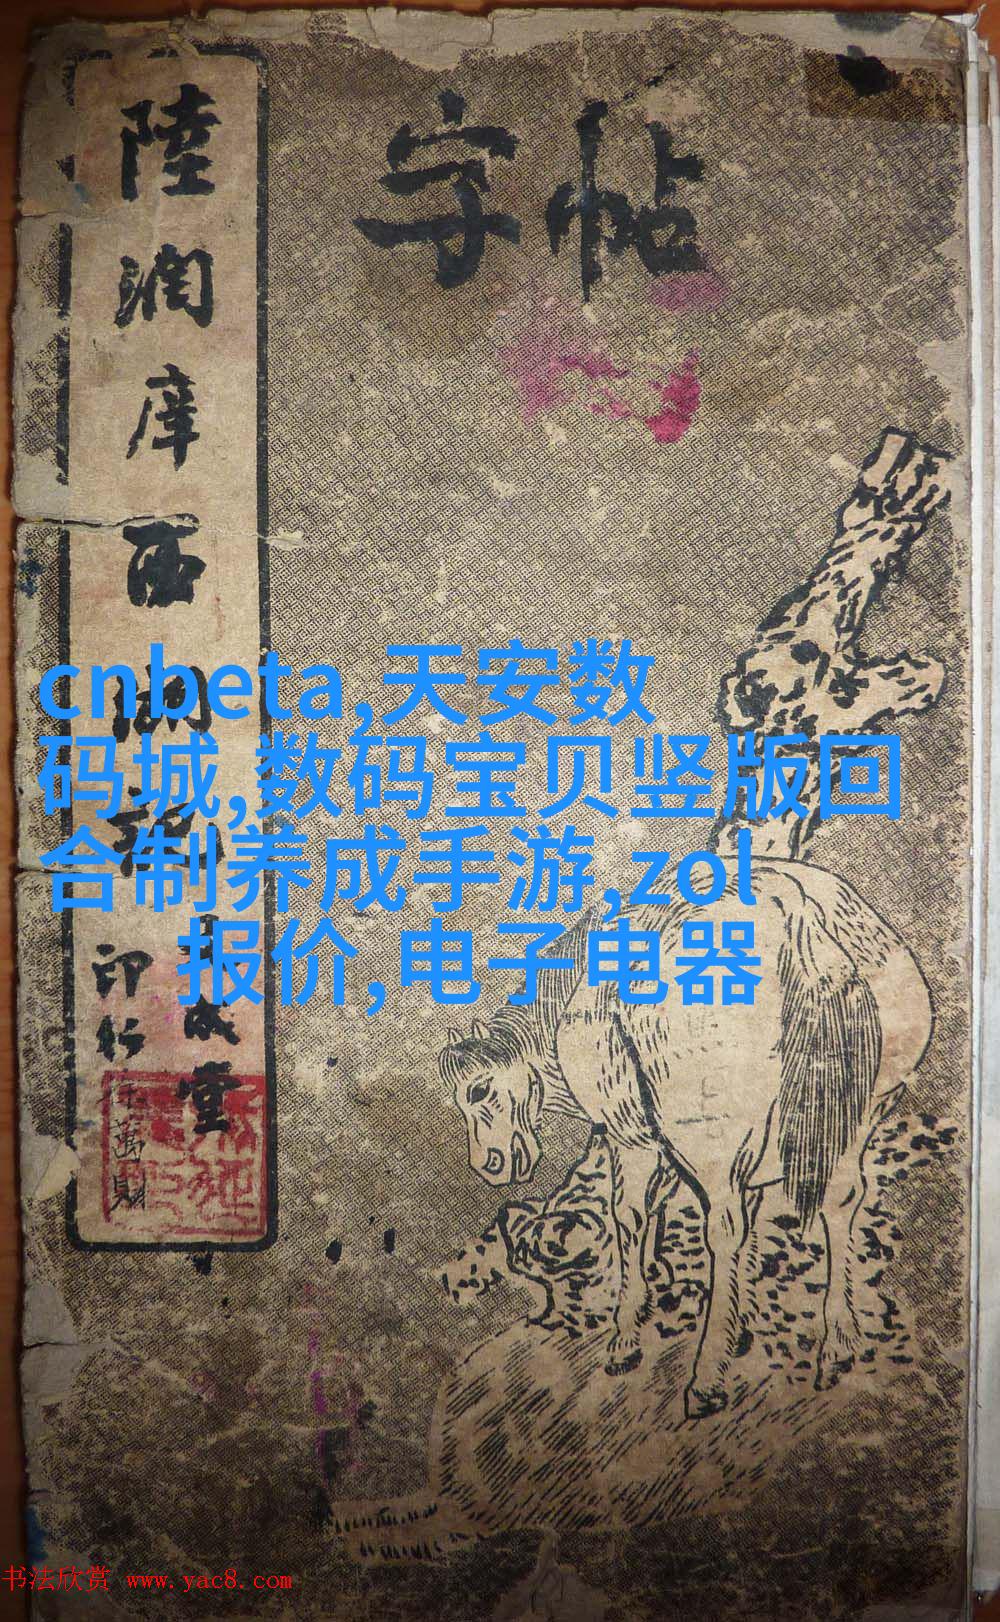 字帖
陸潤庠西湖記
成堂
印行
徐萬財
cnbeta,天安数
码城,数码宝贝竖版回
合制养成手游,zol
报价,电子电器
书法欣赏 www.yac8.com